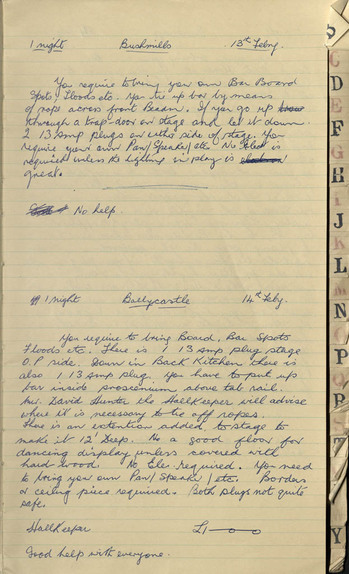 1 night Bushmills 13th Febry.
You require to bring your own Bar Board
Spots, Floods etc. You tie up bar by means
of rope across front Beam. If you go up
through a trap-door on stage and let it down.
2 13 Amp plugs on either side of stage. You
require your own Pan/Speaker/etc. No Elect is
required unless the lighting in play is
great.
No help.
1 night Ballycastle 14th Feby.
You require to bring Board, Bar Spots
Floods etc. There is 1 13 Amp plug stage
O.P side. Down in Back Kitchen there is
also 1 13 Amp plug. You have to put up
bar inside proscenium above tab rail.
Mr. David Hunter the Hallkeeper will advise
where it is necessary to tie off ropes.
There is an extention added to stage to
make it 12' Deep. No a good floor for
dancing display unless covered with
hard wood. No Elec. required. You need
to bring your own Pan/Speaker/etc. Borders
or ceiling piece required. Both plugs not quite
safe.
Hallkeeper £1-0-0
Good help with everyone.
S
C
D
E
F
G
H
I
J
K
L
M
N
O
P
Q
R
T
Y